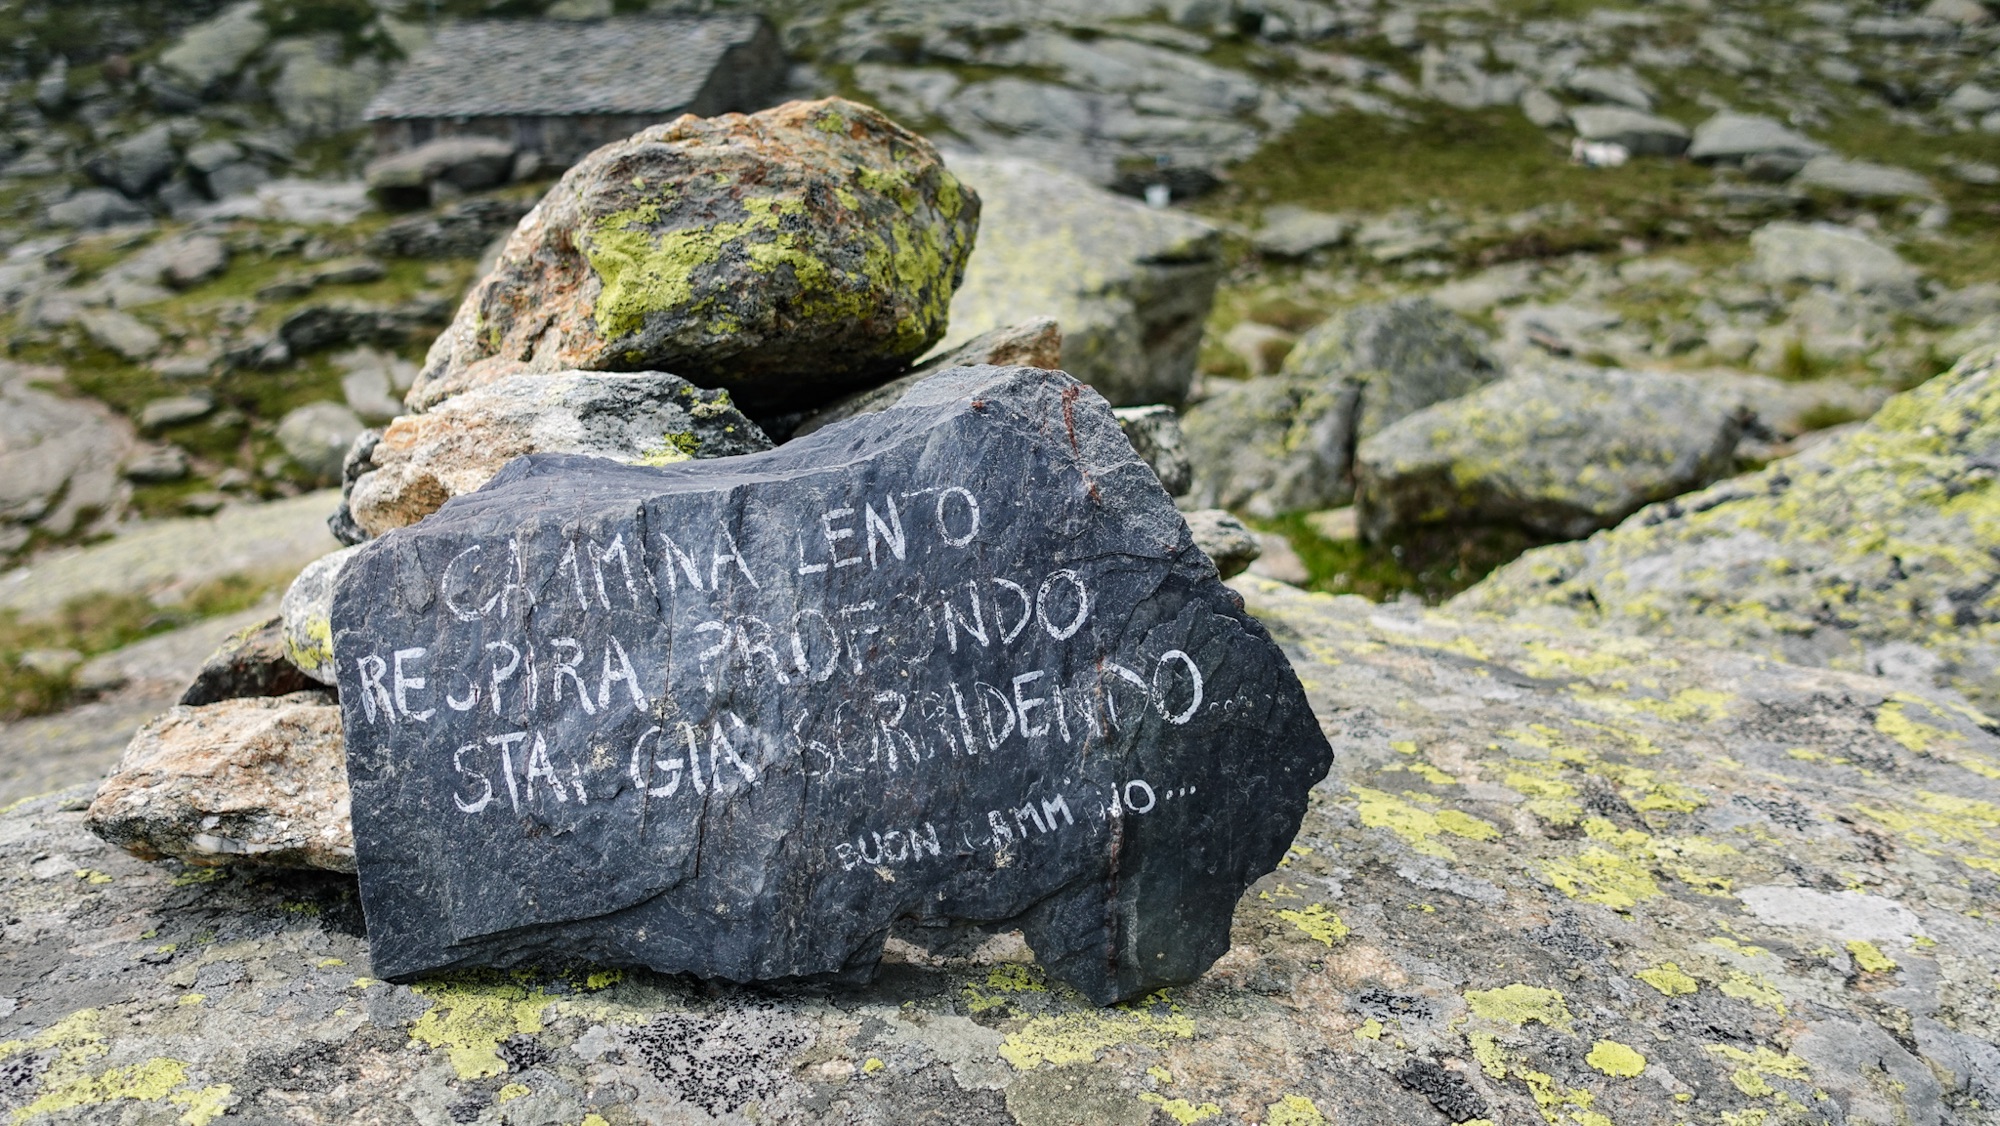 CAMMINA LENTO
RESPIRA PROFONDO
STAI GIÀ SORRIDENDO...
BUON CAMMINO...